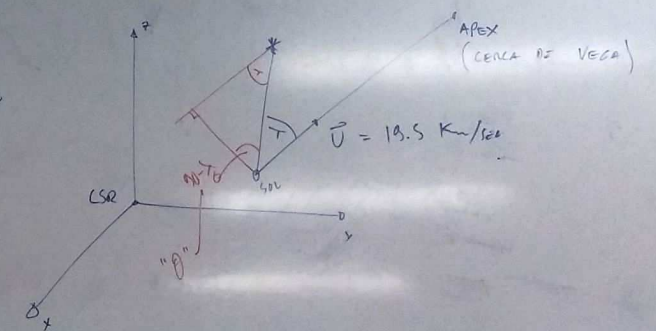 z
APEX
(CERCA DE VEGA)
U = 19.5 Km/seg
SOL
LSR
"θ"
y
x